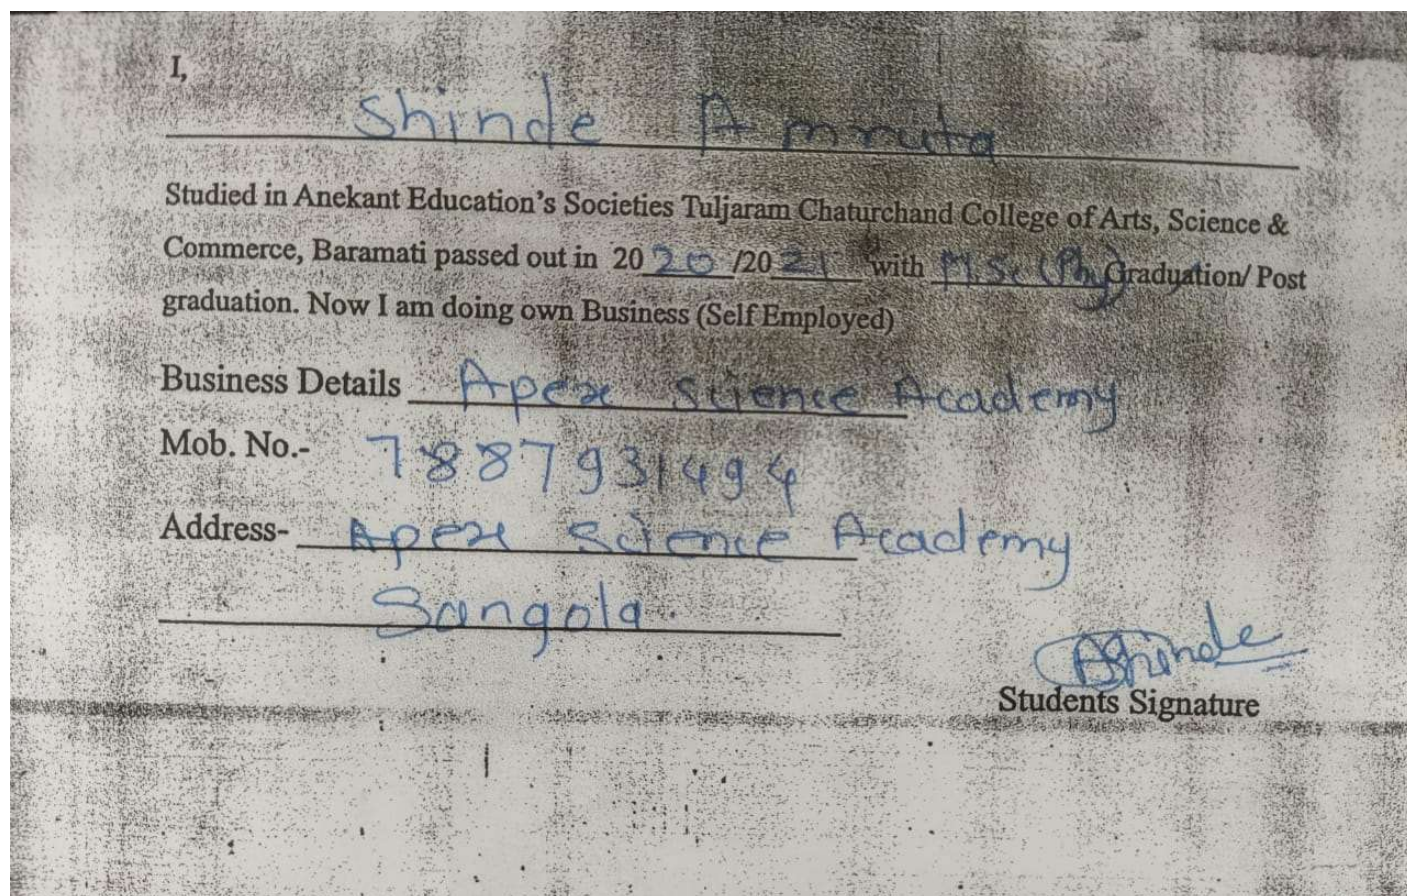 I,
Shinde Amruta
Studied in Anekant Education's Societies Tuljaram Chaturchand College of Arts, Science &
Commerce, Baramati passed out in 2020/2021 with M.Sc (Phy) Graduation/ Post
graduation. Now I am doing own Business (Self Employed)
Business Details Apex Science Academy
Mob. No.- 7887931494
Address- Apex Science Academy
Sangola.
AShinde
Students Signature